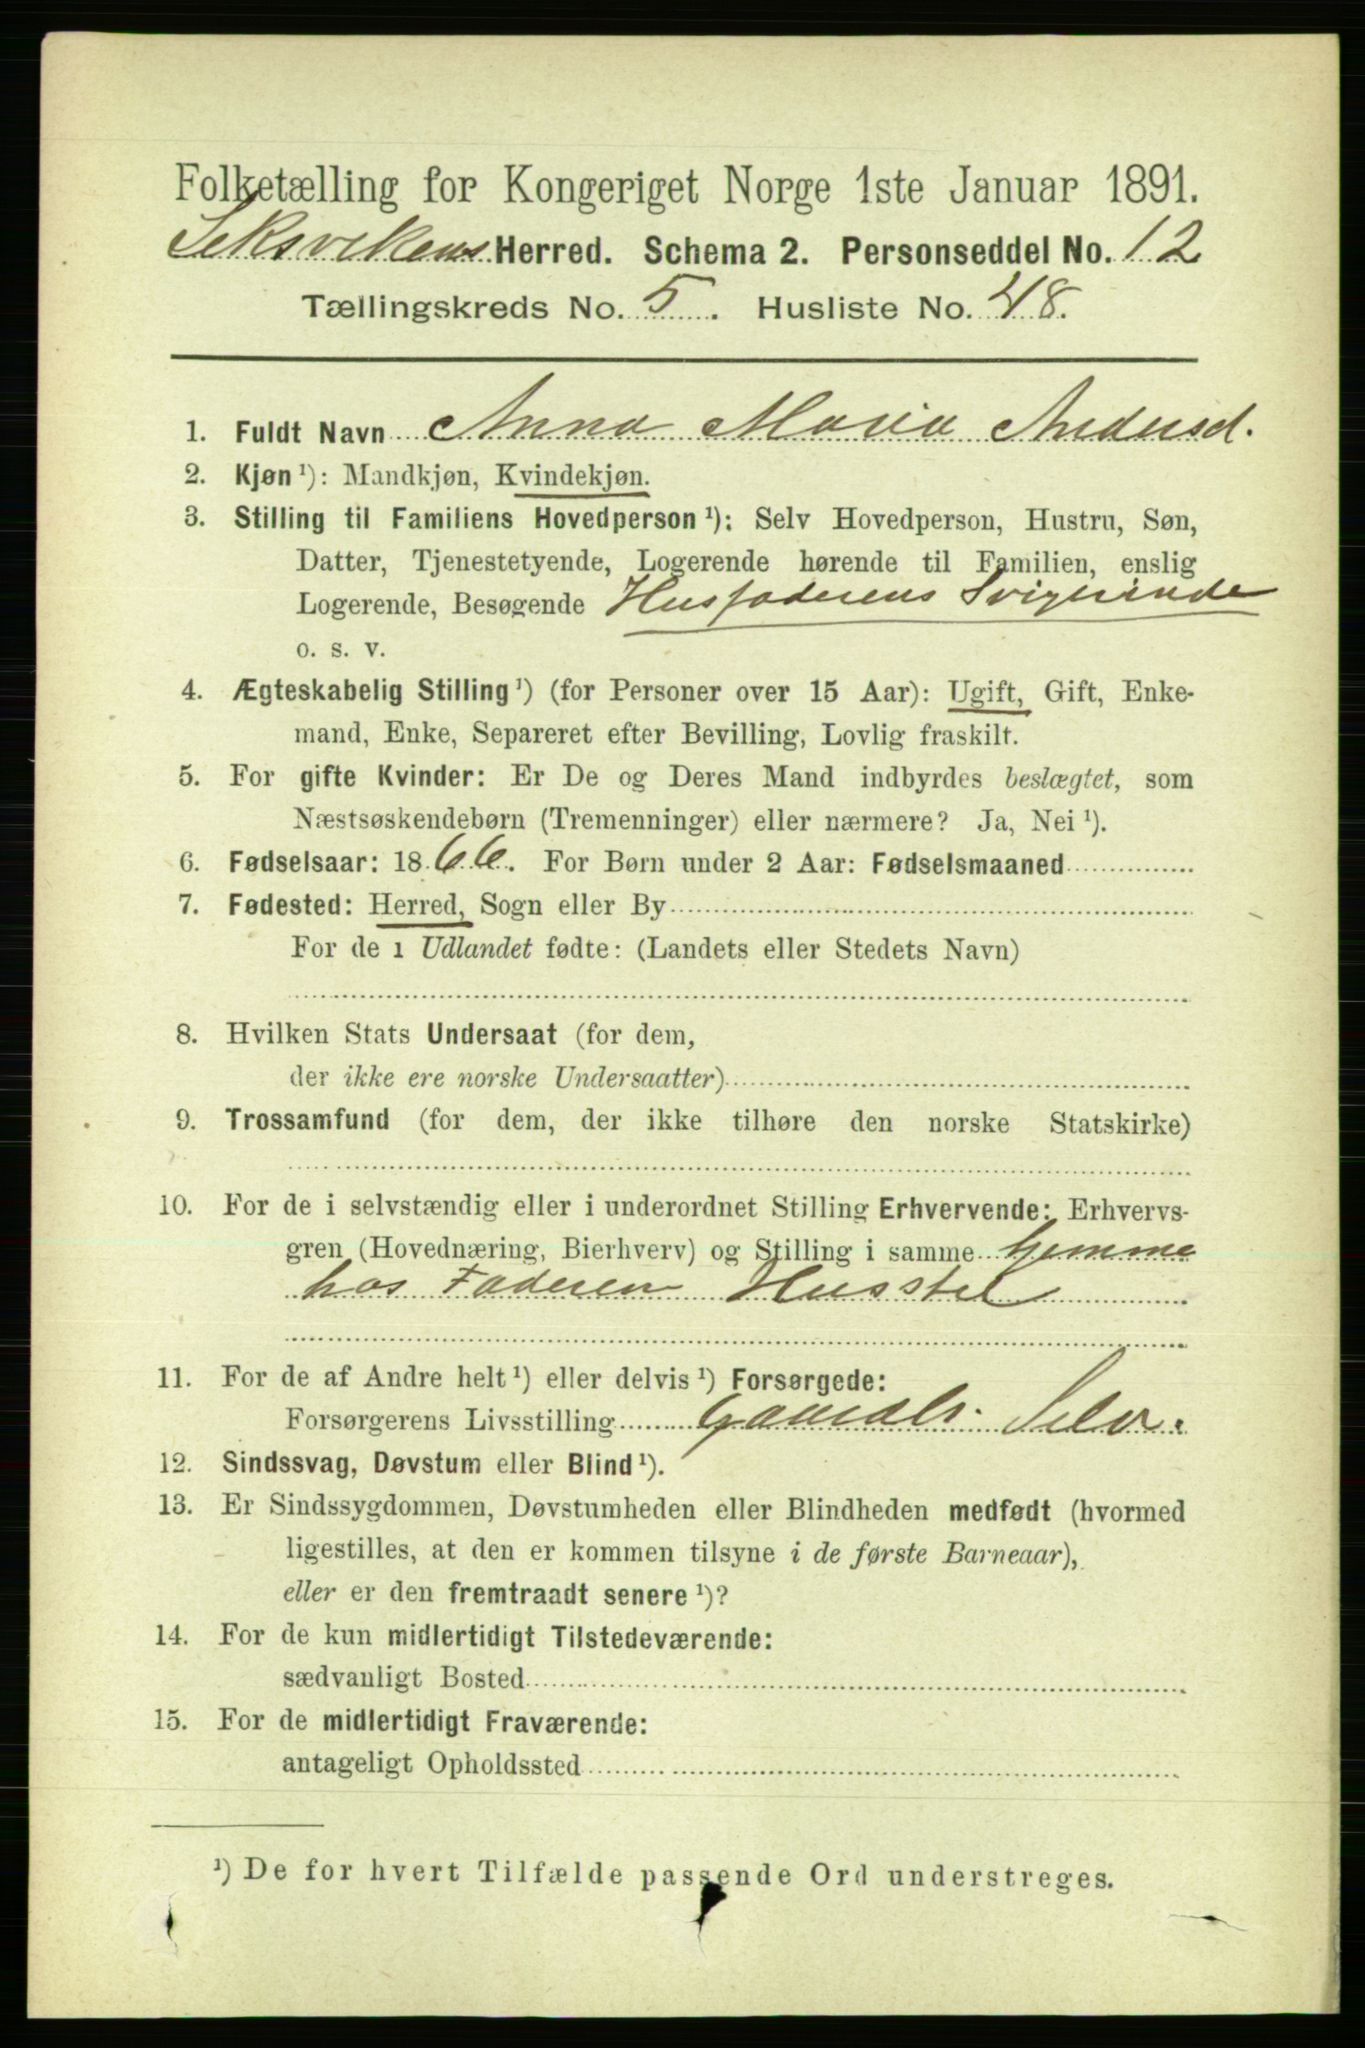 Folketælling for Kongeriget Norge 1ste Januar 1891.
Leksvikens Herred. Schema 2. Personseddel No. 12
Tællingskreds No. 5. Husliste No. 48.
1. Fuldt Navn Anna Maria Andersd.
2. Kjøn ¹): Mandkjøn, Kvindekjøn.
3. Stilling til Familiens Hovedperson ¹): Selv Hovedperson, Hustru, Søn,
Datter, Tjenestetyende, Logerende hørende til Familien, enslig
Logerende, Besøgende Husfaderens Svigerinde
o. s. v.
4. Ægteskabelig Stilling ¹) (for Personer over 15 Aar): Ugift, Gift, Enke-
mand, Enke, Separeret efter Bevilling, Lovlig fraskilt.
5. For gifte Kvinder: Er De og Deres Mand indbyrdes beslægtet, som
Næstsøskendebørn (Tremenninger) eller nærmere? Ja, Nei ¹).
6. Fødselsaar: 1866. For Børn under 2 Aar: Fødselsmaaned
7. Fødested: Herred, Sogn eller By
For de i Udlandet fødte: (Landets eller Stedets Navn)
8. Hvilken Stats Undersaat (for dem,
der ikke ere norske Undersaatter)
9. Trossamfund (for dem, der ikke tilhøre den norske Statskirke)
10. For de i selvstændig eller i underordnet Stilling Erhvervende: Erhvervs-
gren (Hovednæring, Bierhverv) og Stilling i samme hjemme
hos Faderen Husstel
11. For de af Andre helt ¹) eller delvis ¹) Forsørgede:
Forsørgerens Livsstilling Gaardbr. Selv.
12. Sindssvag, Døvstum eller Blind ¹).
13. Er Sindssygdommen, Døvstumheden eller Blindheden medfødt (hvormed
ligestilles, at den er kommen tilsyne i de første Barneaar),
eller er den fremtraadt senere ¹)?
14. For de kun midlertidigt Tilstedeværende:
sædvanligt Bosted
15. For de midlertidigt Fraværende:
antageligt Opholdssted
¹) De for hvert Tilfælde passende Ord understreges.